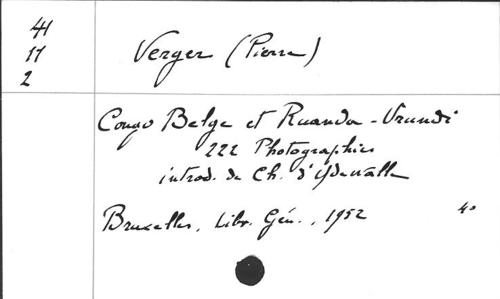 41
11
2
Verger (Pierre)
Congo Belge et Ruanda-Urundi
222 Photographies
introd. de Ch. d'Ydewalle
Bruxelles, Libr. Gén., 1952 4°